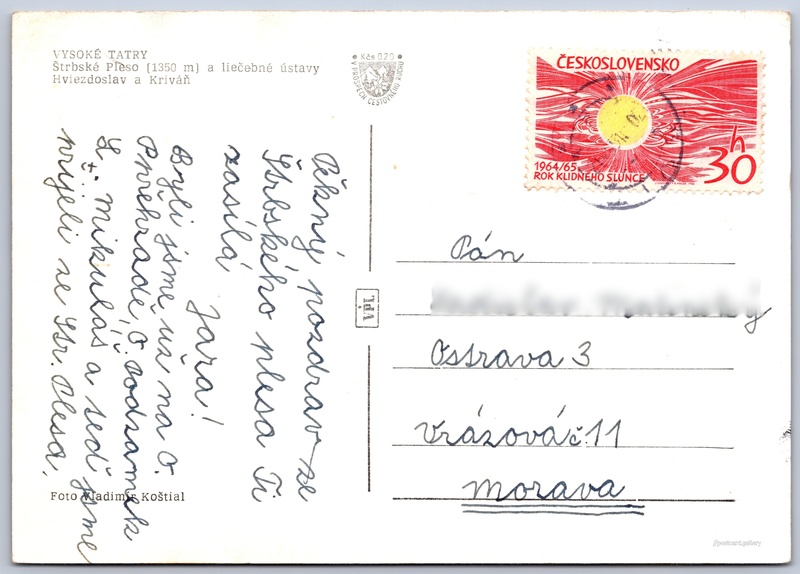 VYSOKÉ TATRY
Štrbské Pleso (1350 m) a liečebné ústavy
Hviezdoslav a Kriváň
Kčs 0,20
V PROSPĚCH CESTOVNÉHO RUCHU
ČESKOSLOVENSKO
1964/65
ROK KLIDNÉHO SLUNCE
30 h
Pěkný pozdrav ze
Štrbského plesa Ti
zasílá
Jařa!
Byli jsme už na O.
Přehradě, O. Podzamek
L. Mikuláš a teď jsme
přijeli ze Str. Plesa.
VpL
Pán
Ostrava 3
Vrázová č. 11
Morava
Foto Vladimír Koštial
postcard.gallery